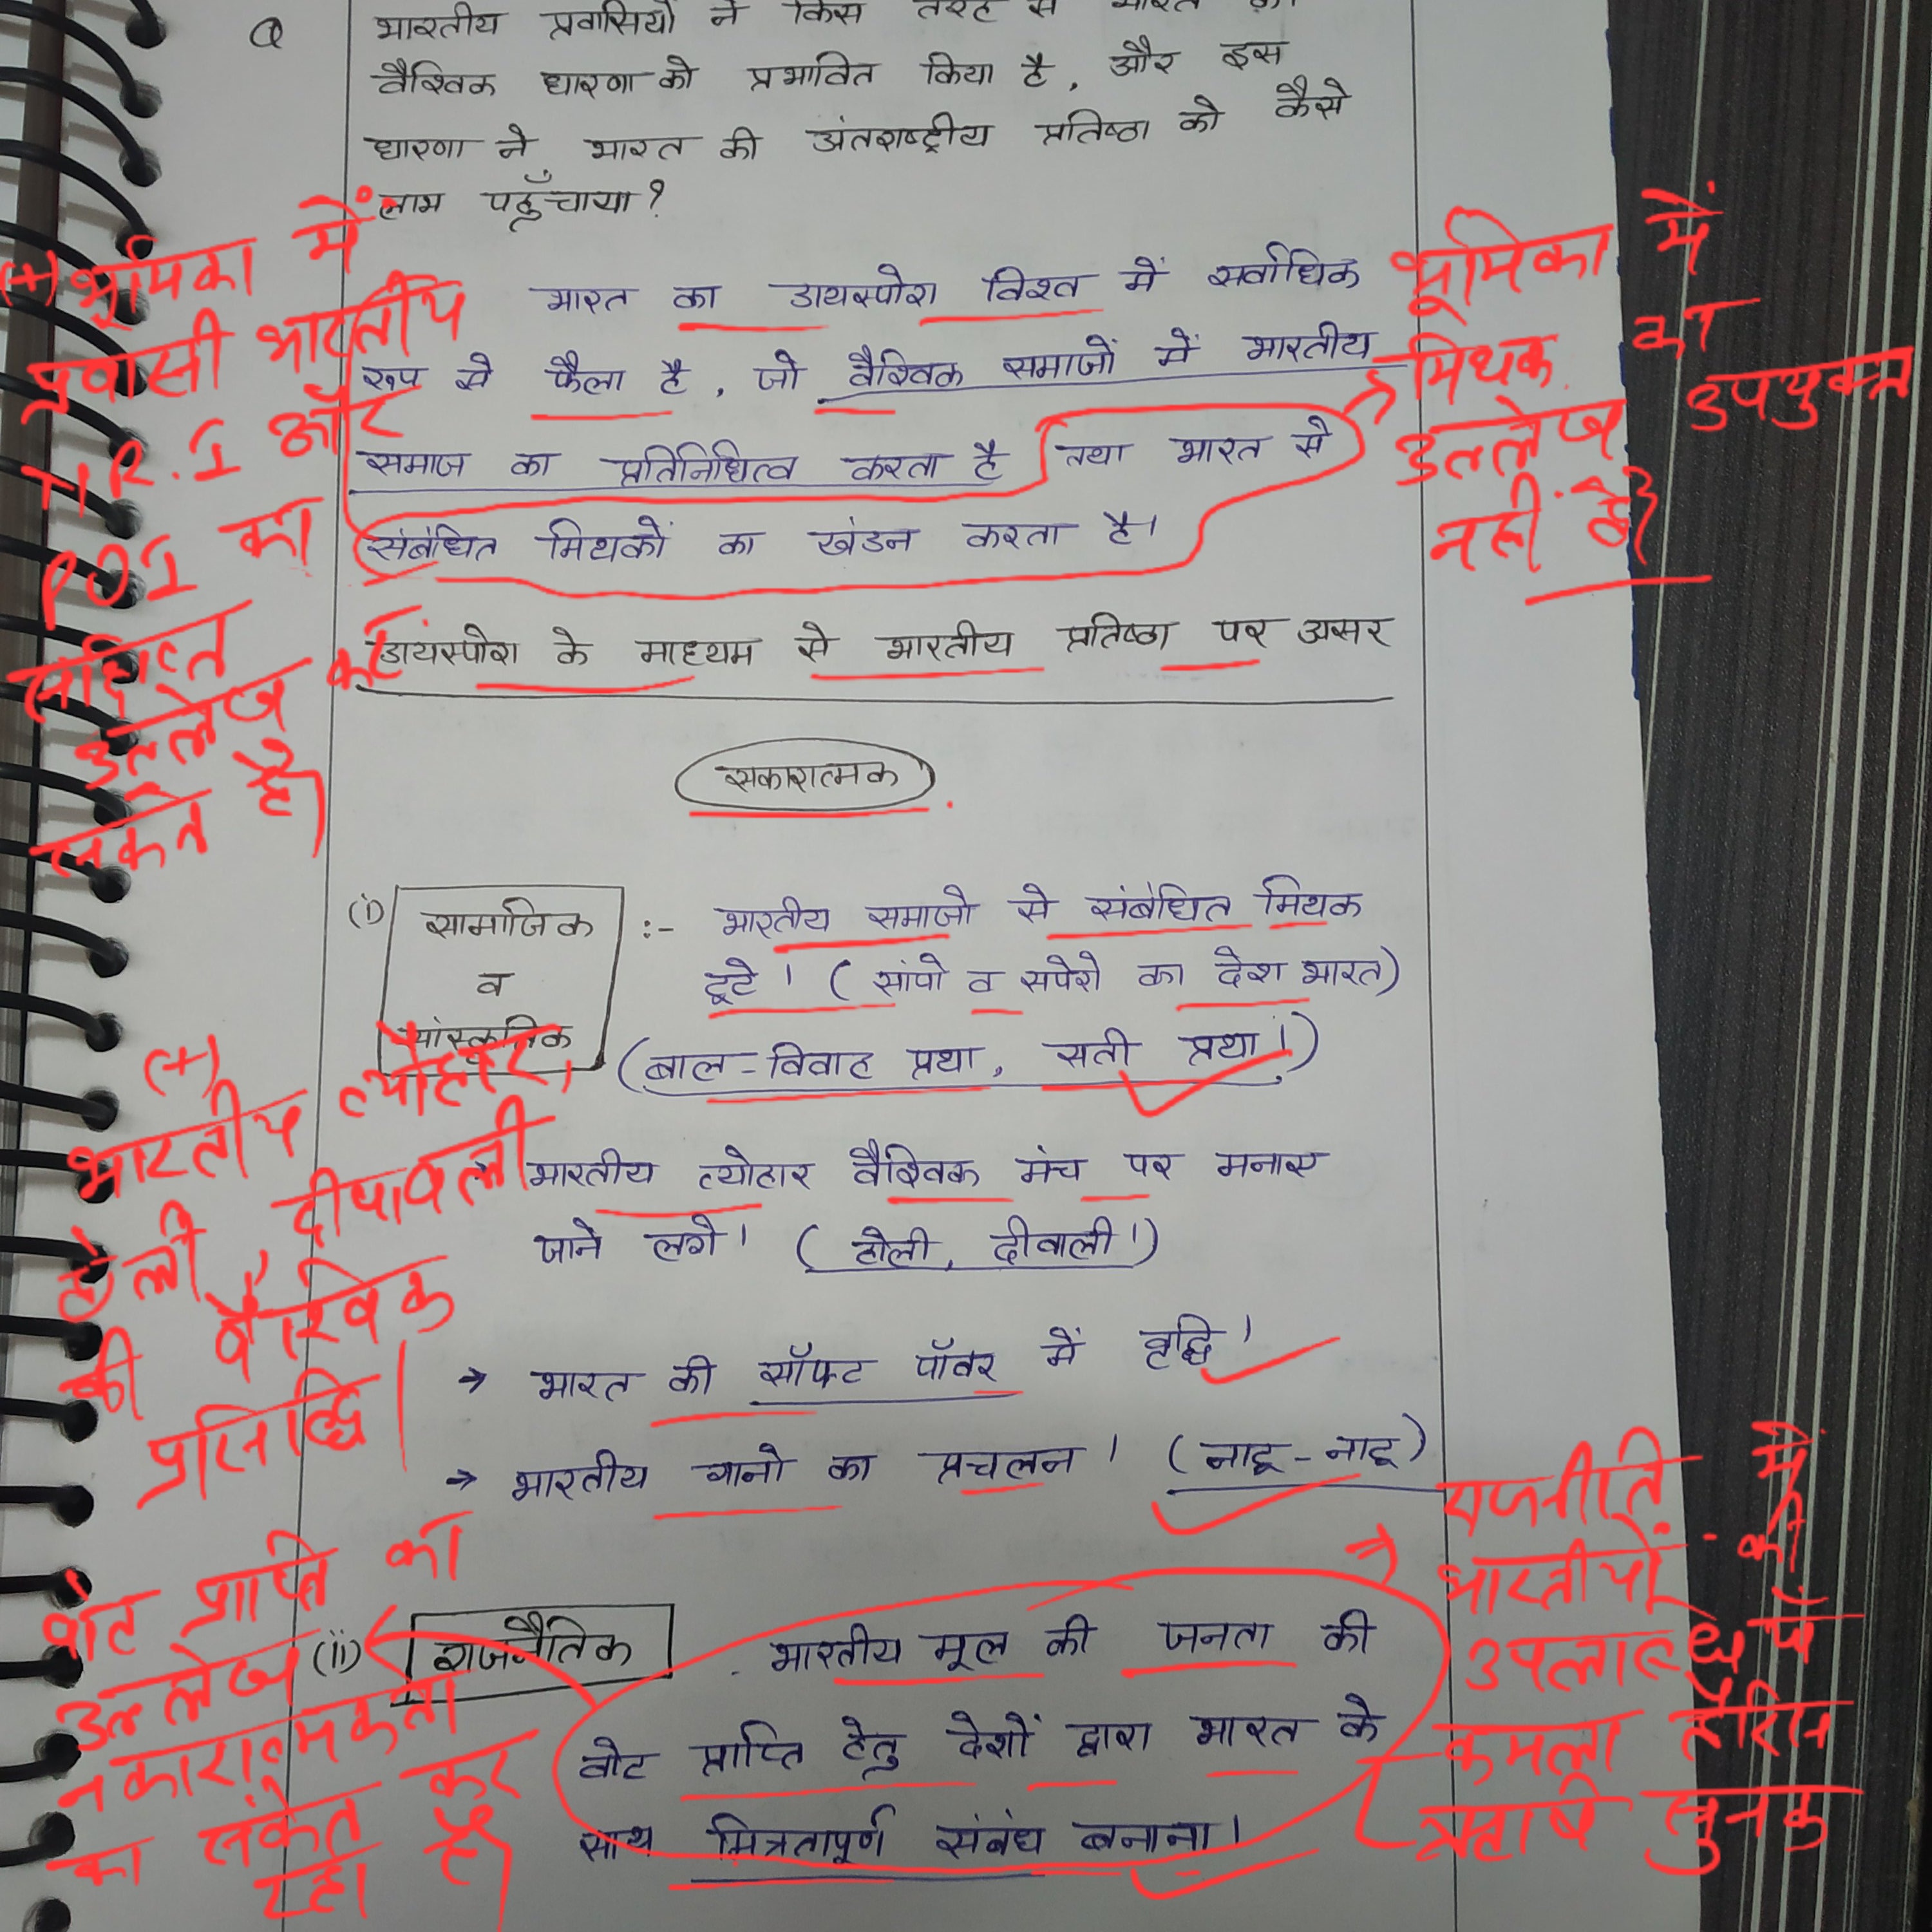 Q भारतीय प्रवासियों ने किस तरह से भारत की
वैश्विक धारणा को प्रभावित किया है, और इस
धारणा ने भारत की अंतराष्ट्रीय प्रतिष्ठा को कैसे
लाभ पहुँचाया?
(+) भूमिका में
प्रवासी भारतीय
N.R.I और
POI का
संक्षिप्त
उल्लेख कर
सकते हैं।
भारत का डायस्पोरा विश्व में सर्वाधिक
रूप से फैला है, जो वैश्विक समाजों में भारतीय
समाज का प्रतिनिधित्व करता है तथा भारत से
संबंधित मिथकों का खंडन करता है।
भूमिका में
मिथक का
उल्लेख उपयुक्त
नहीं है।
डायंस्पोरा के माध्यम से भारतीय प्रतिष्ठा पर असर
सकारात्मक
(i) सामाजिक
व
सांस्कृतिक
:- भारतीय समाजो से संबंधित मिथक
टूटे। (सांपो व सपेरो का देश भारत)
(बाल-विवाह प्रथा, सती प्रथा।)
(+)
भारतीय त्योहार,
होली, दीपावली
की वैश्विक
प्रसिद्धि।
भारतीय त्योहार वैश्विक मंच पर मनाए
जाने लगे। (होली, दीवाली।)
→ भारत की सॉफ्ट पॉवर में वृद्धि।
→ भारतीय गानो का प्रचलन। (नाटू-नाटू)
वोट प्राप्ति का
उल्लेख
नकारात्मकता
का संकेत कर
रहा है।
(ii) राजनैतिक
भारतीय मूल की जनता की
वोट प्राप्ति हेतु देशों द्वारा भारत के
साथ मित्रतापूर्ण संबंध बनाना।
राजनीति में
भारतीयों की
उपलब्धियाँ
कमला हैरिस
ऋषि सुनक